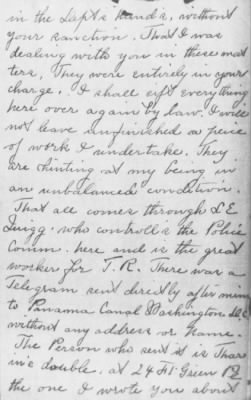 in the Dept's hands, without
your sanction. That I was
dealing with you in these mat
ters, They were entirely in your
charge. I shall sift everything
here over again by law. I will
not leave unfinished a piece
of work I undertake. They
are hinting at my being in
an unbalanced condition.
That all comes through L E
Quigg. who controlls the Police
Comm. here and is the great
worker for T. R. There was a
Telegram sent directly after mine
to Panama Canal Washington D.C.
without any address or name.
The Person who sent it is
double. at 24 St. Green
the one I wrote you about